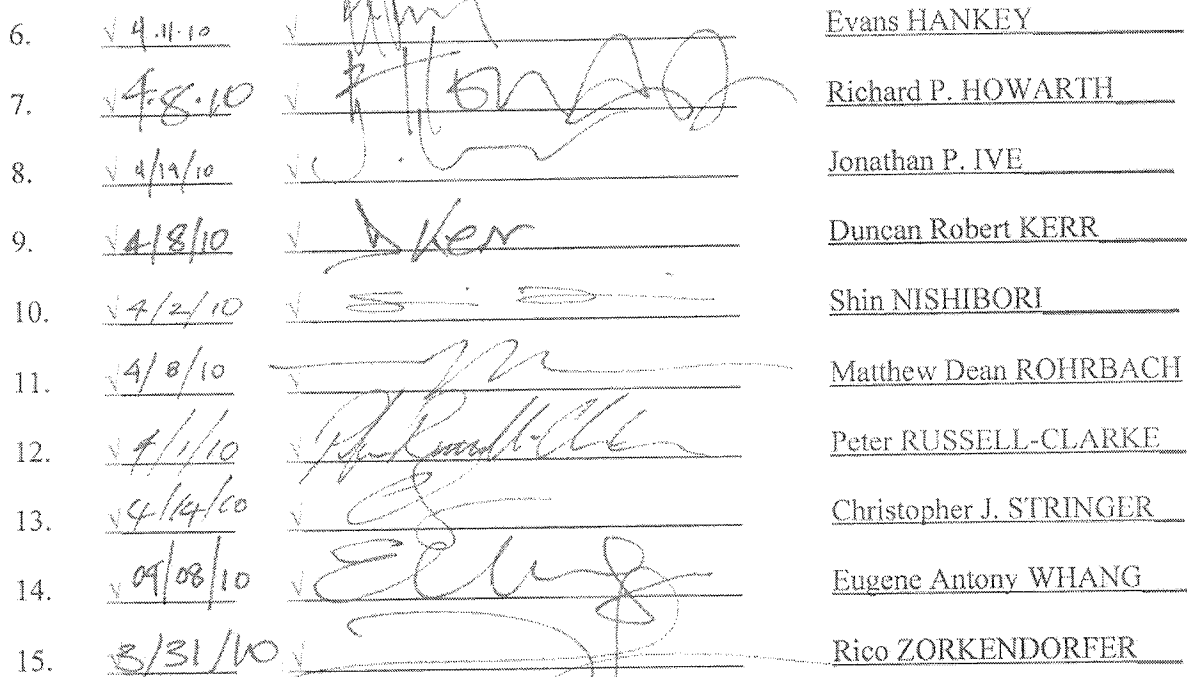 6. √ 4.11.10 √ Evans HANKEY
7. √ 4.8.10 √ Richard P. HOWARTH
8. √ 4/19/10 √ Jonathan P. IVE
9. √ 4/8/10 √ D Kerr Duncan Robert KERR
10. √ 4/2/10 √ Shin NISHIBORI
11. √ 4/8/10 √ Matthew Dean ROHRBACH
12. √ 4/1/10 √ Peter Russell-Clarke Peter RUSSELL-CLARKE
13. √ 4/14/10 √ Christopher J. STRINGER
14. √ 04/08/10 √ Eugene Antony WHANG
15. √ 3/31/10 √ Rico ZORKENDORFER